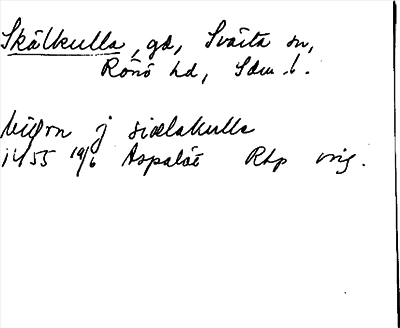 Skälkulla, gd, Svärta sn,
Rönö hd, Sdm.l.
biörn j siælakulla
1455 19/6 Aspalöt Rhp orig.